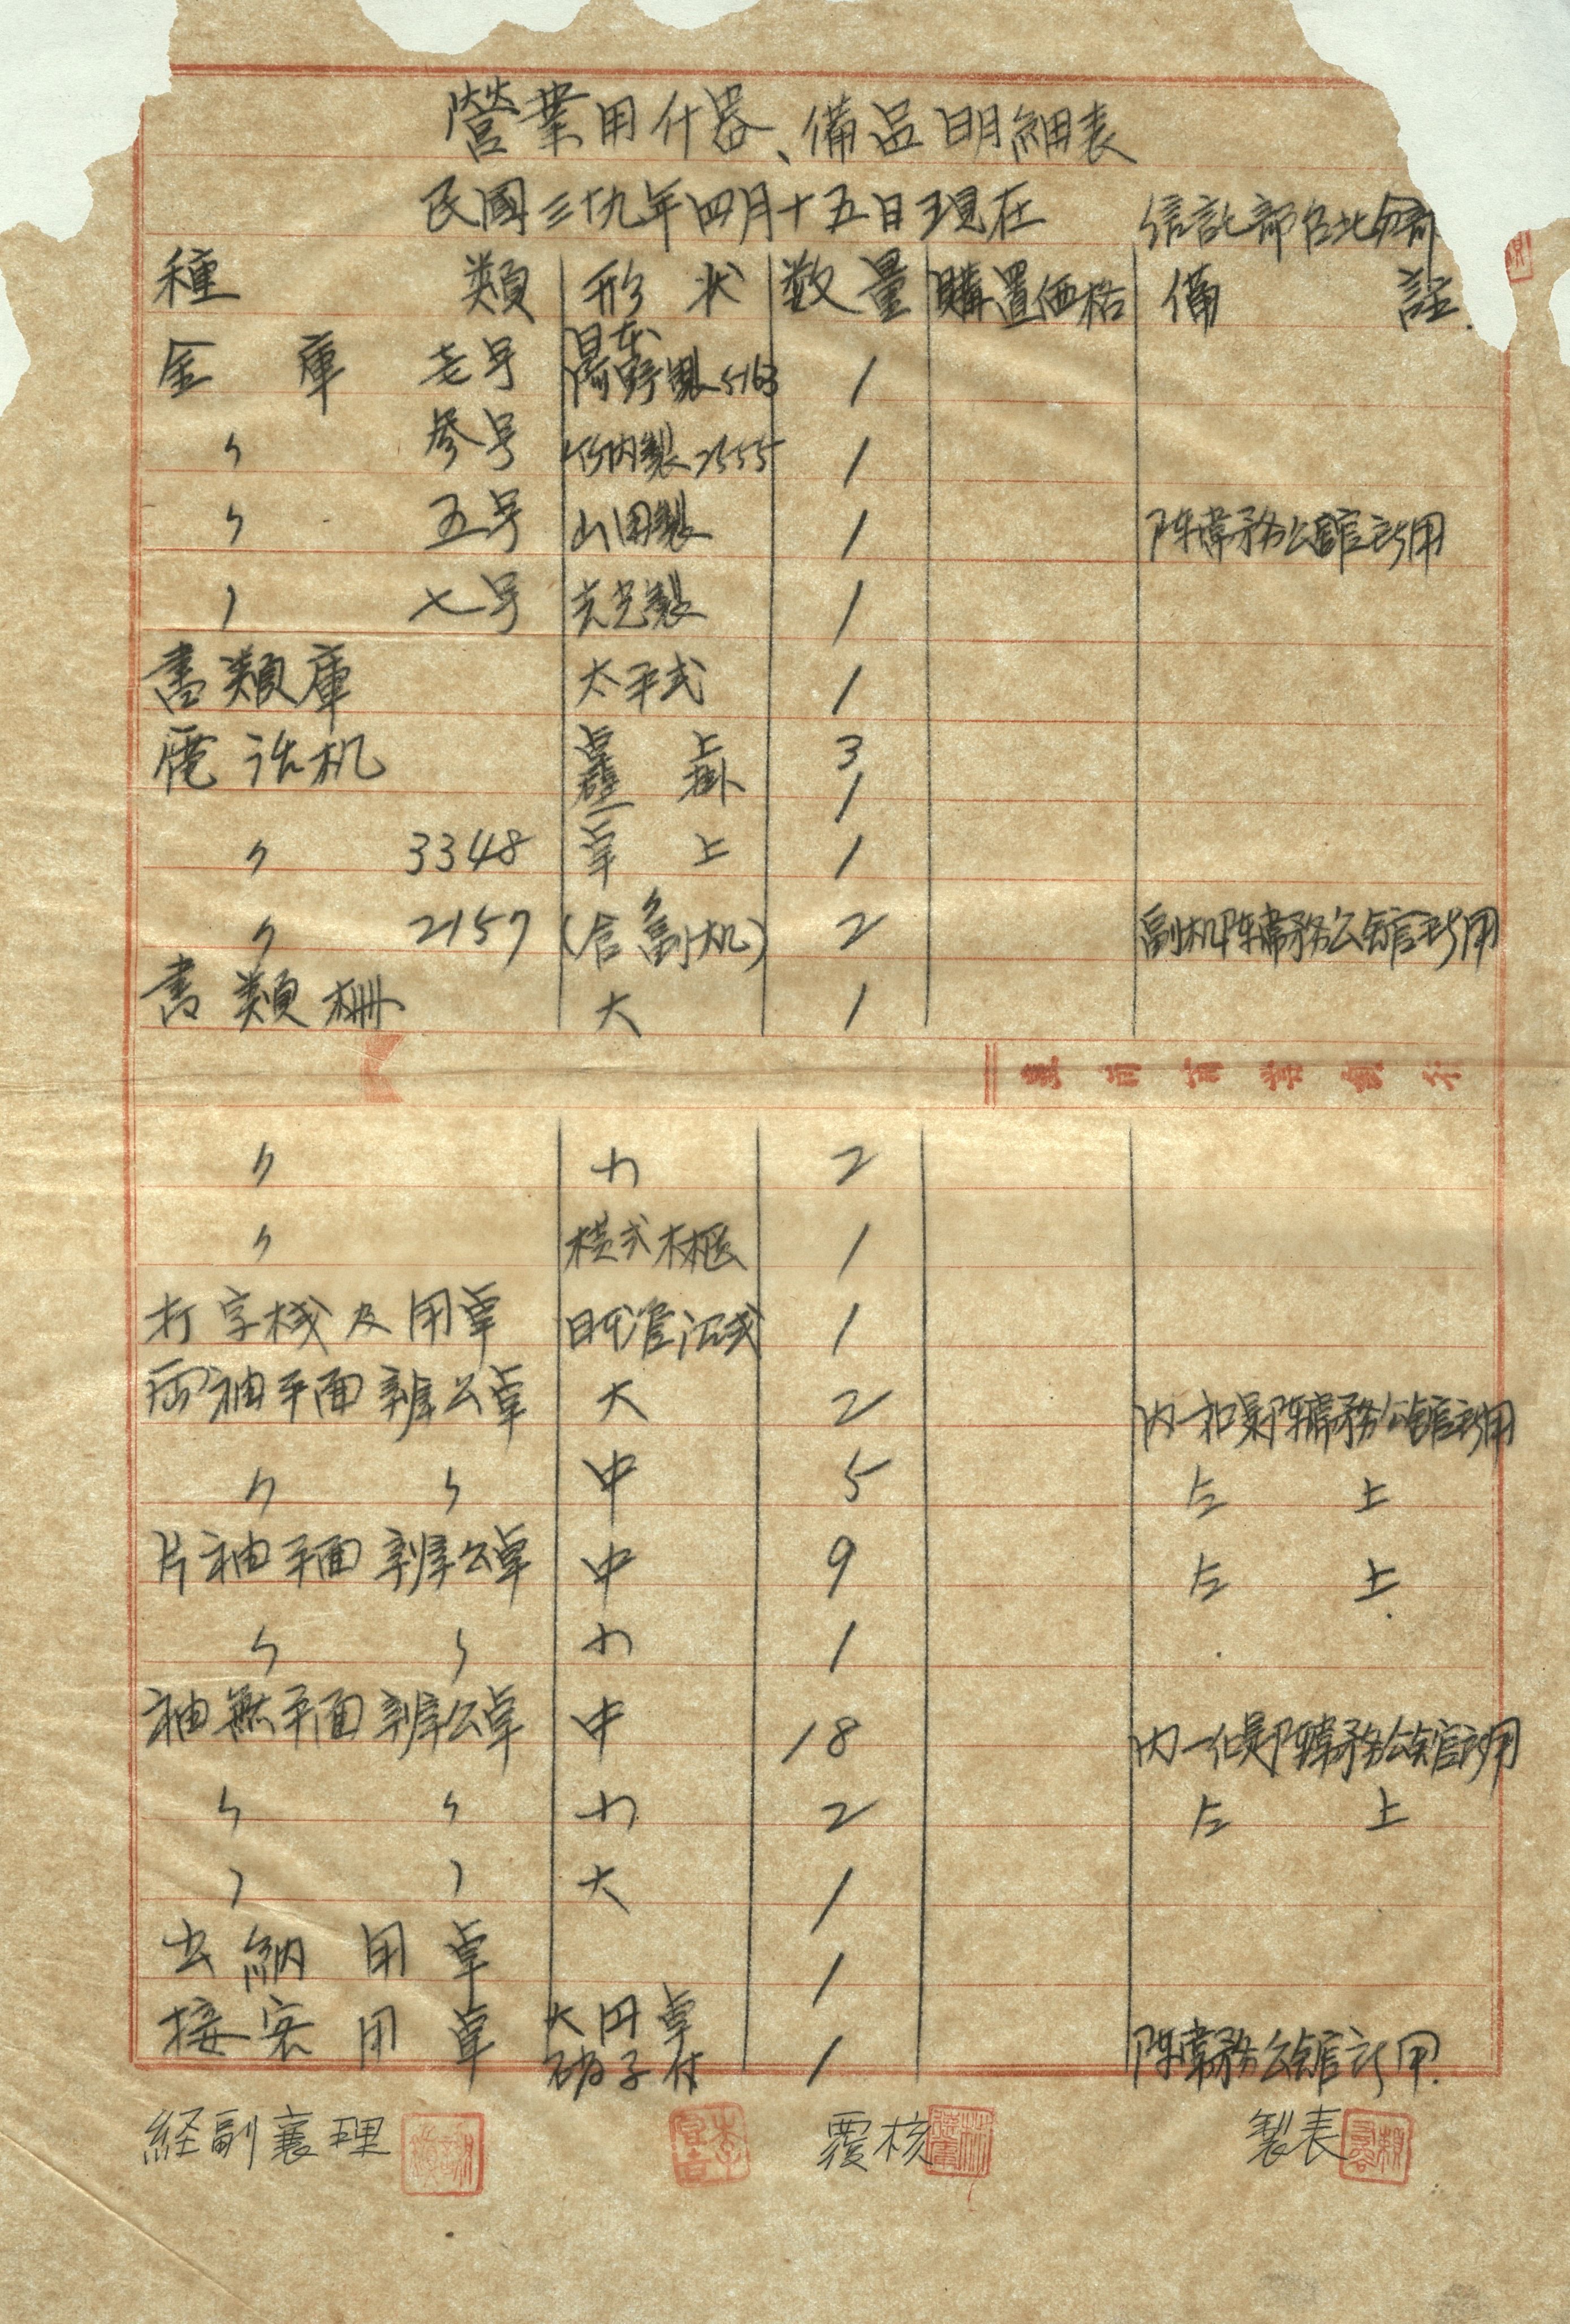 營業用什器、備品明細表
民國三十九年四月十五日現在 信託部台北
種類 形狀 数量 購置価格 備註
金庫 壱号 日本 製5163 1
〃 参号 竹内製2555 1
〃 五号 山田製 1 陳常務公館所用
〃 七号 製 1
書類庫 太平式 1
電话机 卓上 3
壁掛 1
〃 3348 卓上 1
〃 2157 〃(含副机) 2 副机陳常務公館所用
書類柵 大 1
〃 小 2
〃 横式木柜 1
打字机及用卓 日本 式 1
両袖平面辦公卓 大 2 内一 陳常務公館所用
〃 〃 中 5 仝上
片袖平面辦公卓 中 9 仝上
〃 〃 小 1
袖無平面辦公卓 中 18 内一 陳常務公館所用
〃 〃 小 2 仝上
〃 〃 大 1
出納用卓 1
接客用卓 大円卓 硝子付 1 陳常務公館所用
経副襄理 覆核 製表